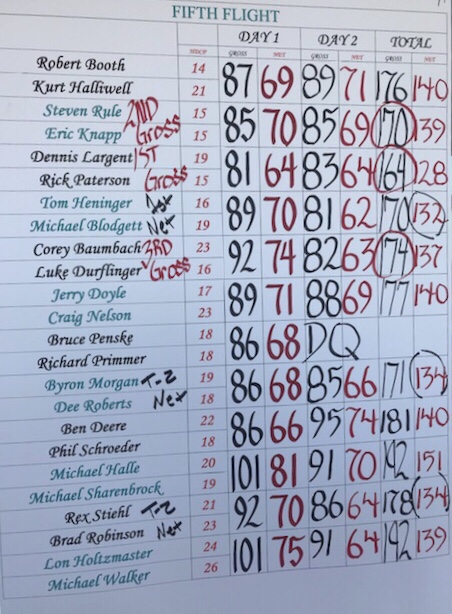 FIFTH FLIGHT
DAY 1 DAY 2 TOTAL
HDCP GROSS NET GROSS NET GROSS NET
Robert Booth 14 87 69 89 71 176 140
Kurt Halliwell 21
Steven Rule 2ND 15 85 70 85 69 170 139
Eric Knapp Gross 15
Dennis Largent 1ST 19 81 64 83 64 164 128
Rick Paterson Gross 15
Tom Heninger 1st 16 89 70 81 62 170 132
Michael Blodgett Net 19
Corey Baumbach 3RD 23 92 74 82 63 174 137
Luke Durflinger Gross 16
Jerry Doyle 17 89 71 88 69 177 140
Craig Nelson 23
Bruce Penske 18 86 68 DQ
Richard Primmer 18
Byron Morgan T-2 19 86 68 85 66 171 134
Dee Roberts Net 18
Ben Deere 22 86 66 95 74 181 140
Phil Schroeder 18
Michael Halle 20 101 81 91 70 192 151
Michael Sharenbrock 19
Rex Stiehl T-2 21 92 70 86 64 178 134
Brad Robinson Net 23
Lon Holtzmaster 24 101 75 91 64 192 139
Michael Walker 26